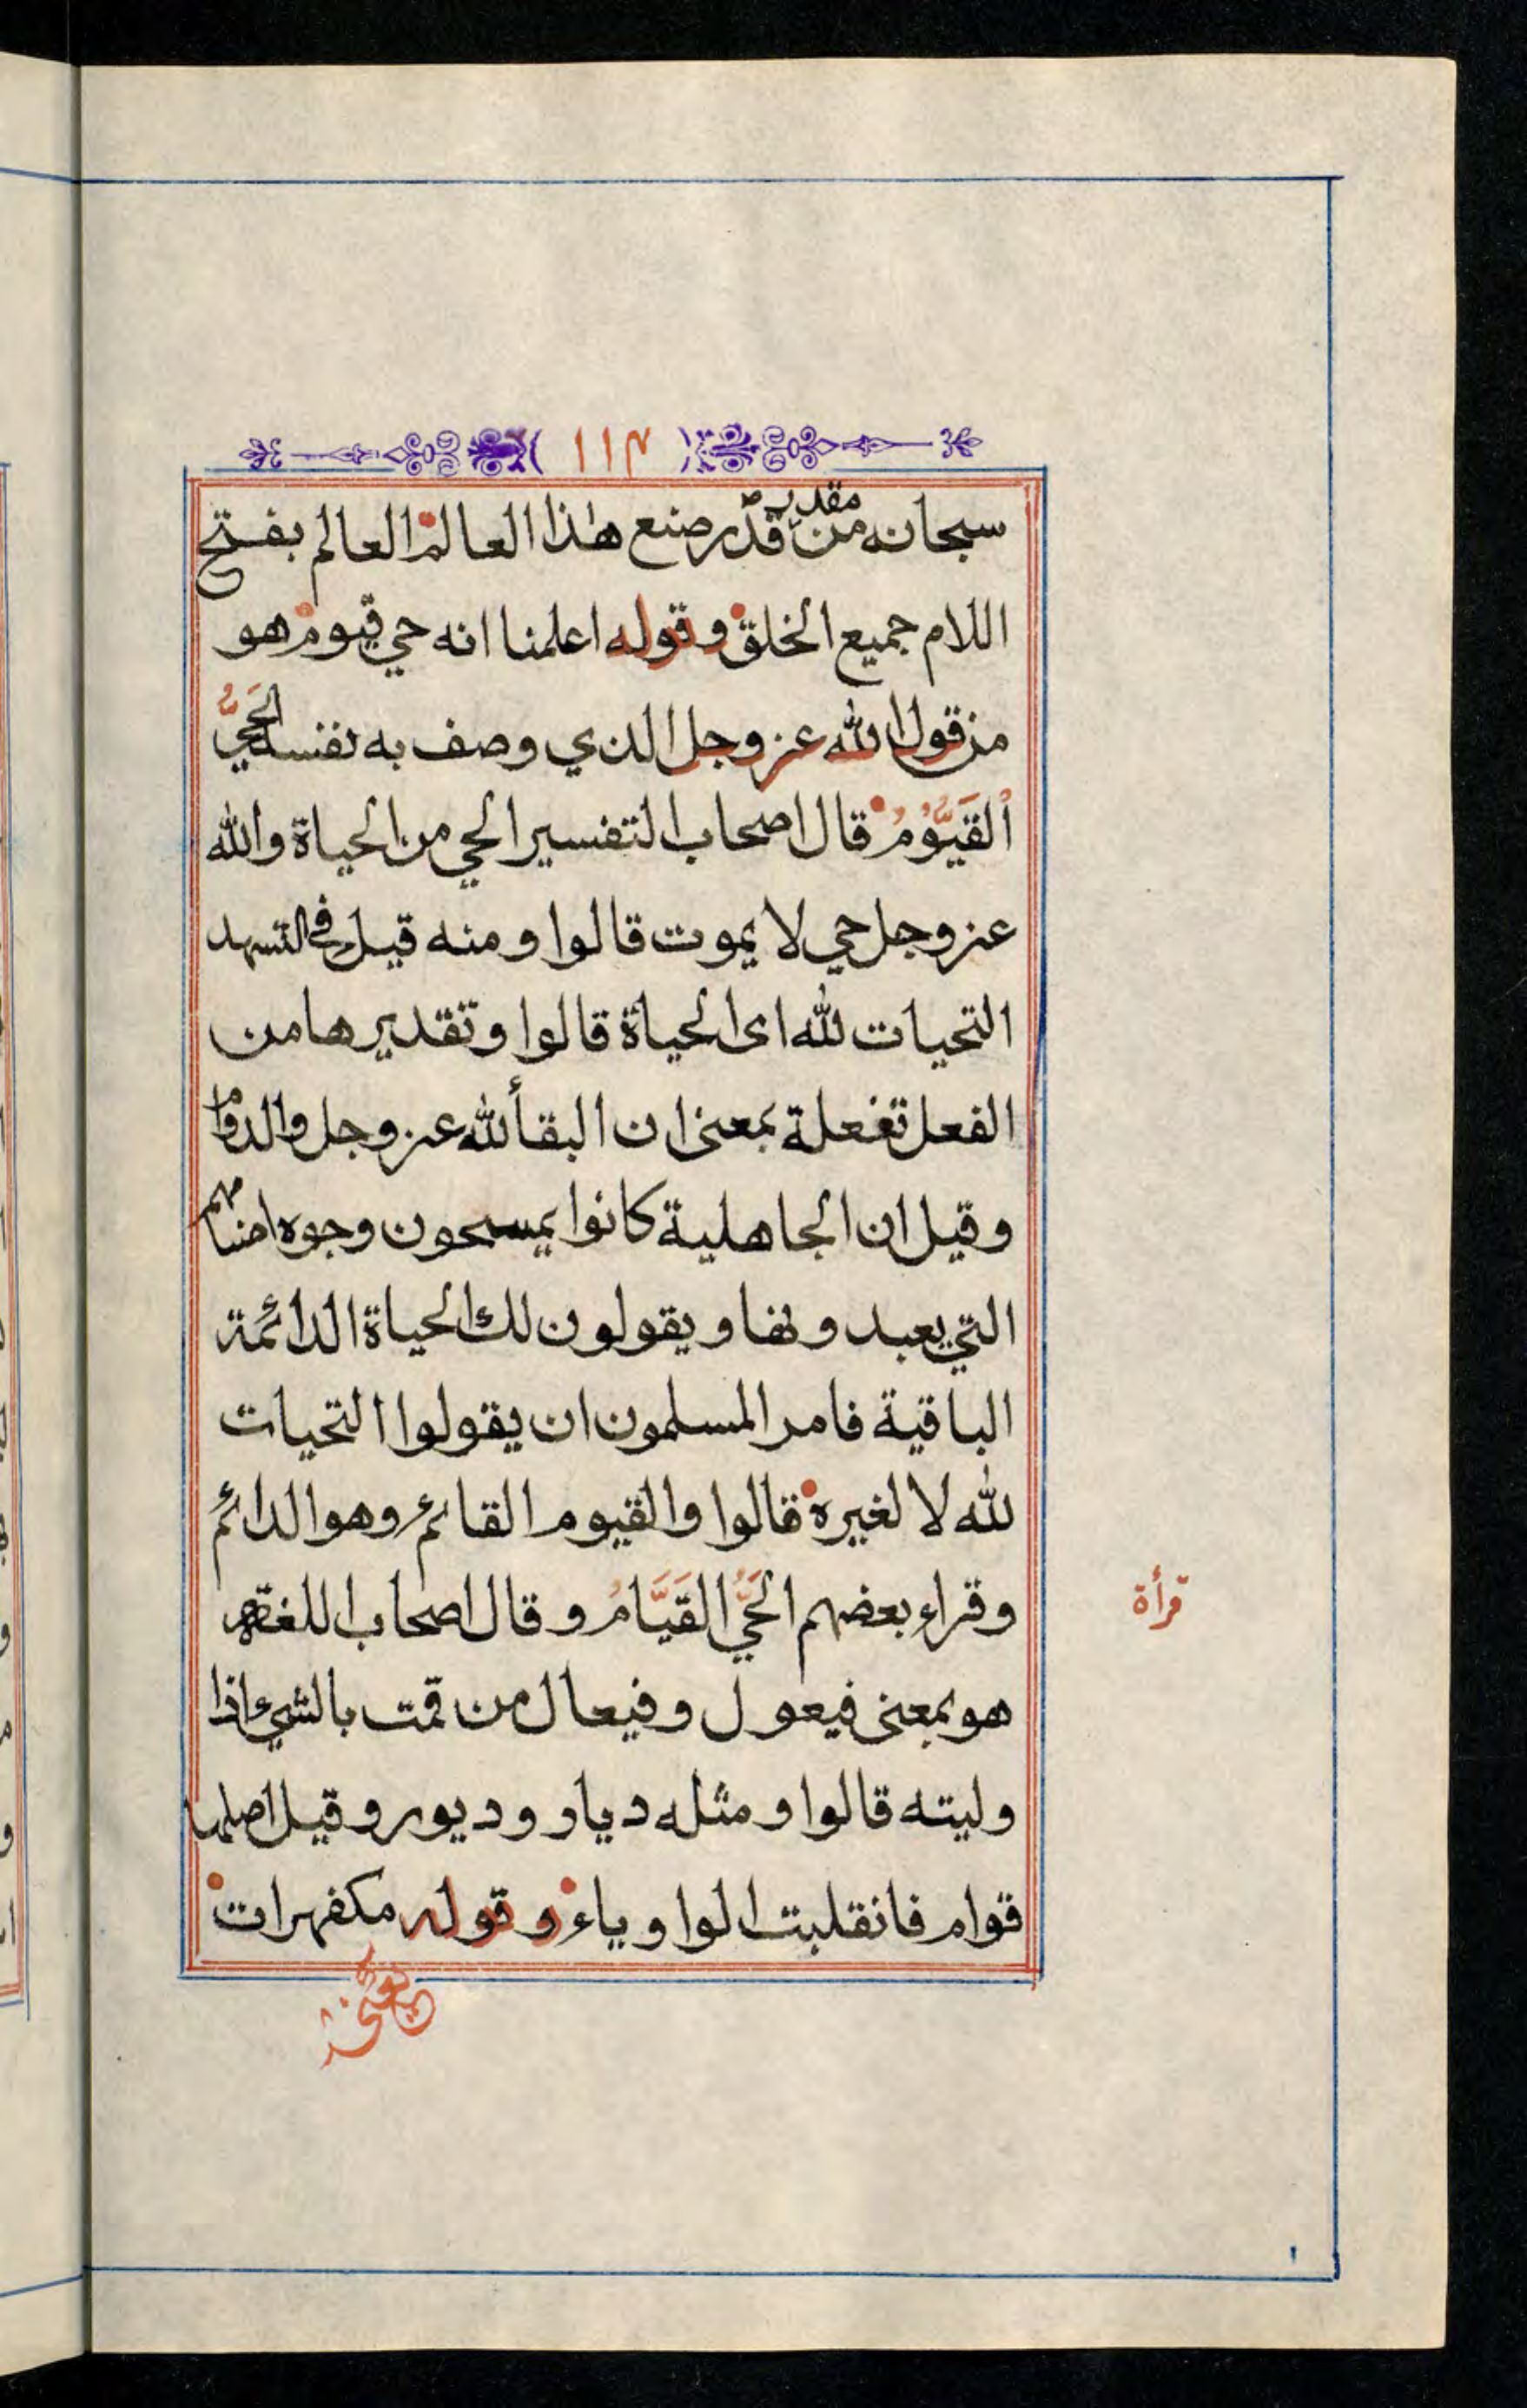 ١١٣
سبحانه من مقدر قدّر صنع هذا العالم العالم بفتح
اللام جميع الخلق وقوله اعلمنا انه حي قيوم هو
من قول الله عز وجل الذي وصف به نفسه الحَيُّ
اَلقَيُّوُمُ قال اصحاب التفسير الحي من الحياة والله
عز وجل حي لا يموت قالوا ومنه قيل في التشهد
التحيات لله اى الحياة قالوا وتقديرها من
الفعل تفعلة بمعنى ان البقأ لله عز وجل والدوام
وقيل ان الجاهلية كانوا يمسحون وجوه اصنامهم
التي يعبدونها ويقولون لك الحياة الدائمة
الباقية فامر المسلمون ان يقولوا التحيات
لله لا لغيره قالوا والقيوم القائم وهو الدائم
وقراء بعضهم الحَيُّ القَيَّامُ وقال اصحاب اللغة
هو بمعنى فيعول وفيعال من قمت بالشيء اذا
وليته قالوا ومثله ديار وديور وقيل اصلها
قوام فانقلبت الواو ياء وقوله مكفهرات
يعني
قرأة